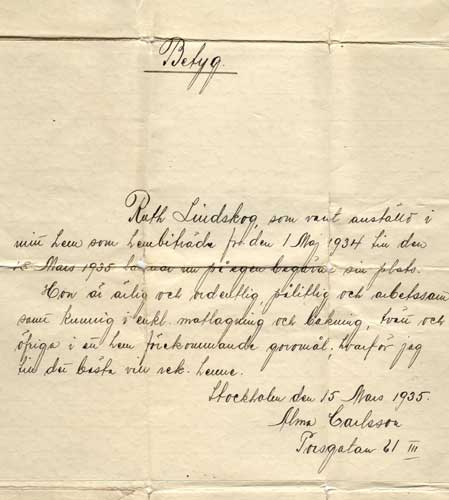 Betyg.
Ruth Lindskog som varit anställd i
mitt hem som hembiträde fr. den 1 Maj 1934 till den
15 Mars 1935 lämnar nu på egen begäran sin plats.
Hon är ärlig och ordentlig, pålitlig och arbetssam
samt kunnig i enkl. matlagning och bakning, tvätt och
öfriga i ett hem förekommande göromål, hvarför jag
till det bästa vill rek. henne.
Stockholm den 15 Mars 1935.
Alma Carlsson
Torsgatan 61 III